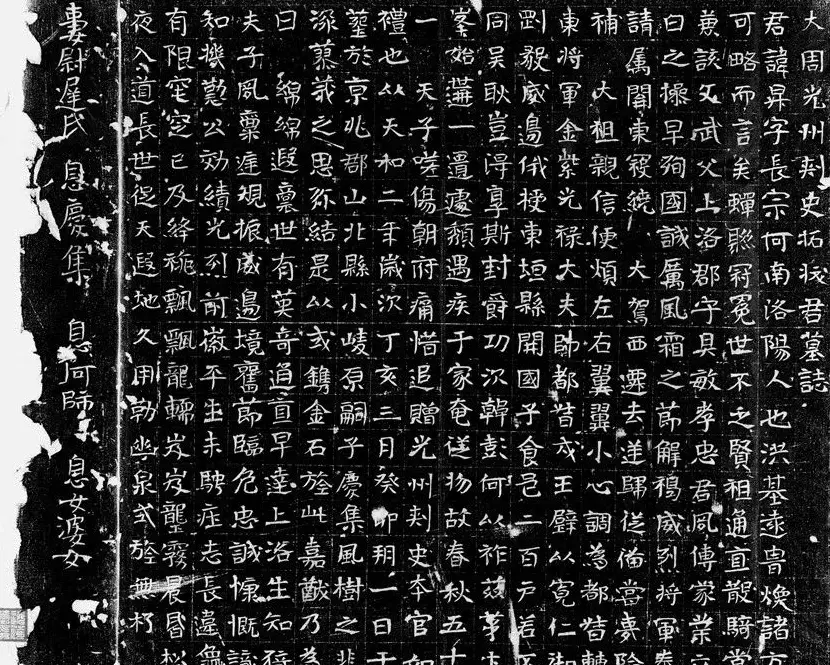 大周光州刺史拓拔君墓誌
君諱昇字長宗河南洛陽人也洪基遠胄煥諸方
可略而言矣蟬聯冠冕世不乏賢祖通直散騎常
兼該文武父上洛郡守具敏孝忠君風傳家業
曰之操早殉國誠厲風霜之節解褐威烈將軍奉
請屬關東寇繞大駕西遷去逆歸從備嘗夷險
補大祖親信便煩左右翼翼小心調為都督轉
東將軍金紫光祿大夫帥都督戎王壁以寬仁
剛毅威邊俄授東垣縣開國子食邑二百戶若
同吳耿豈得享斯封爵功次韓彭何以祚茲茅
峯始蕫一匱遽頹遇疾于家奄從物故春秋五十
一天子嗟傷朝府痛惜追贈光州刺史本官如
禮也以天和二年歲次丁亥三月癸卯朔一日
葬於京兆郡山北縣小陵原嗣子慶集風樹之悲
深慕義之思弥結是以式鐫金石旌此嘉猷乃為
曰綿綿遐裔世有英奇通直早達上洛生知
夫子風稟雄規振威邊境舊節臨危忠誠慷慨識
知機勳公効績光列前徽平生未騁在志長違
有限窀穸已及絳旐飄飄龍轜岌岌壟霧晨昏松
夜入道長世從天遐地久用勒幽泉式旌無朽
妻尉遲氏 息慶集 息何師 息女婆女